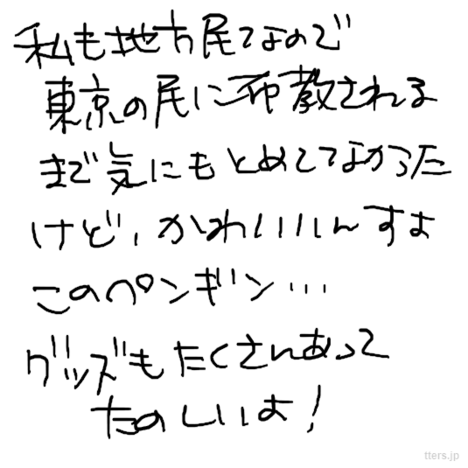 私も地方民なので
東京の民に布教される
まで気にもとめてなかった
けど、かわいいんすよ
このペンギン…
グッズもたくさんあって
たのしいよ！
tters.jp